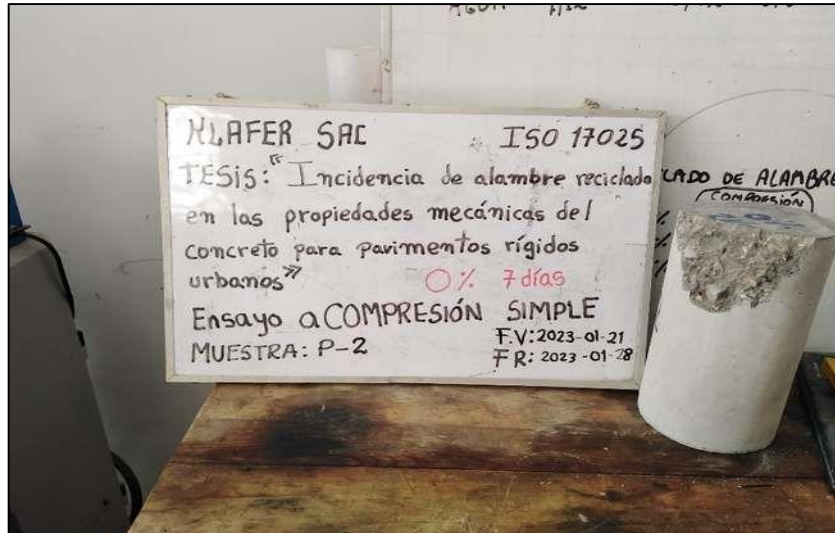 KLAFER SAC ISO 17025
TESIS: "Incidencia de alambre reciclado
en las propiedades mecánicas del
concreto para pavimentos rígidos
urbanos"
0% 7 días
Ensayo a COMPRESIÓN SIMPLE
MUESTRA: P-2
F.V: 2023-01-21
F R: 2023-01-28
CLADO DE ALAMBRE
COMPRESIÓN